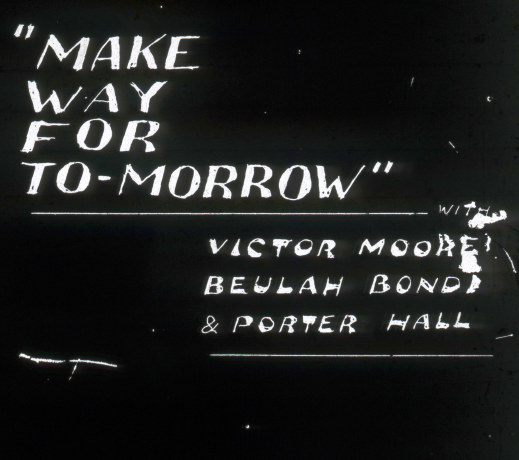 "MAKE
WAY
FOR
TO-MORROW"
WITH
VICTOR MOORE
BEULAH BONDI
& PORTER HALL